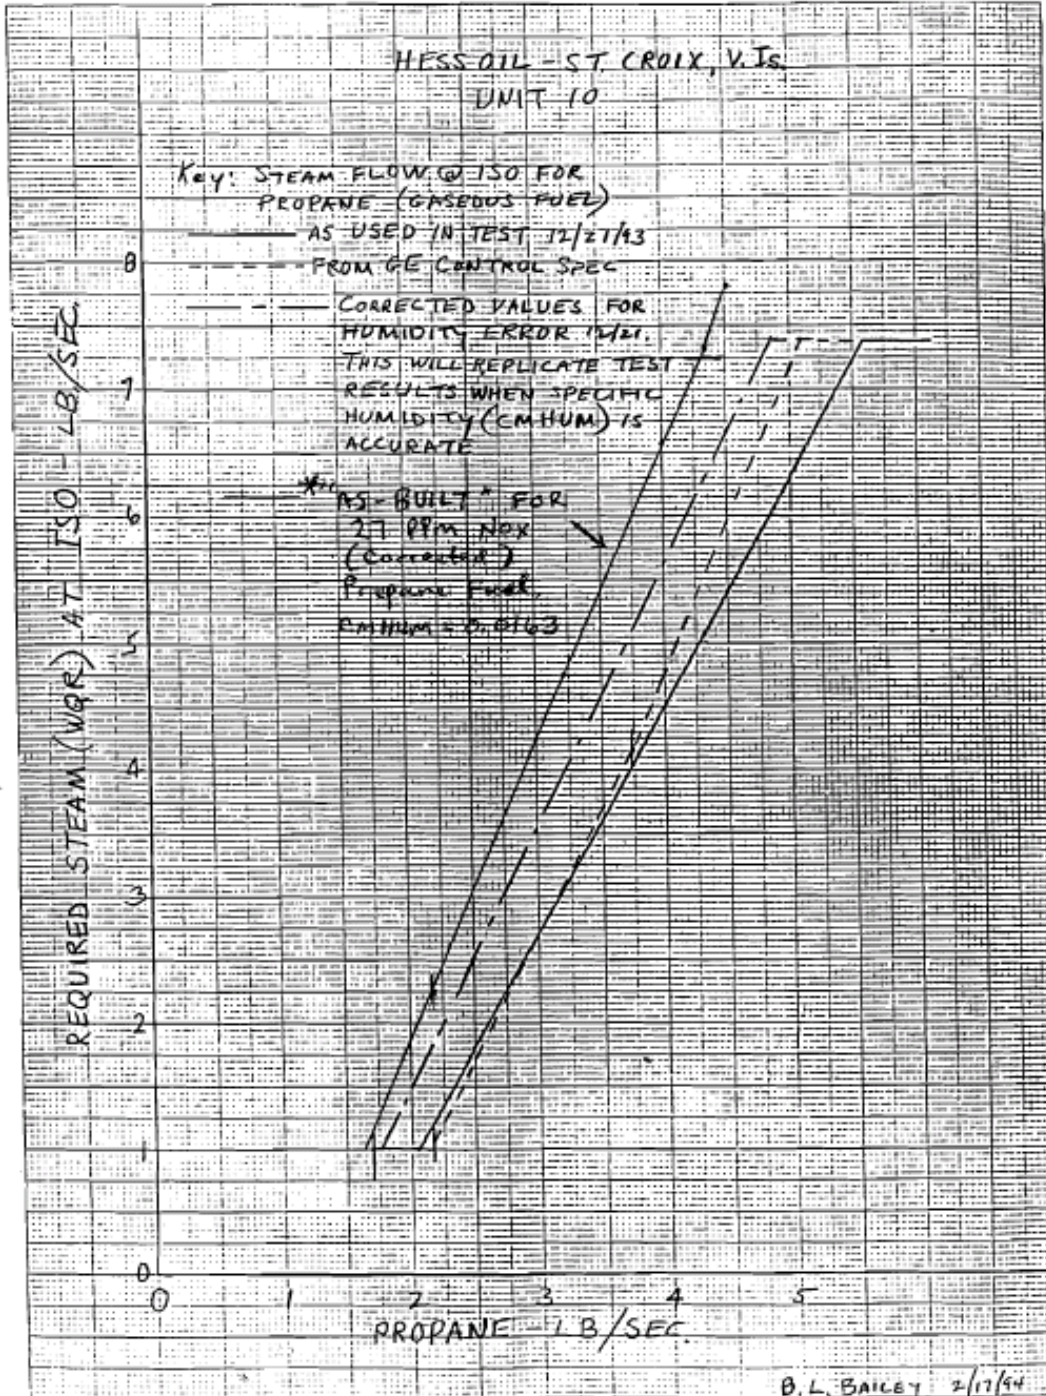 HESS OIL - ST. CROIX, V. Is.
UNIT 10
Key: STEAM FLOW @ ISO FOR
PROPANE (GASEOUS FUEL)
AS USED IN TEST 12/21/93
FROM GE CONTROL SPEC
CORRECTED VALUES FOR
HUMIDITY ERROR 12/21.
THIS WILL REPLICATE TEST
RESULTS WHEN SPECIFIC
HUMIDITY (CMHUM) IS
ACCURATE
*"AS-BUILT" FOR
27 PPM NOX
(Corrected)
Propane Fuel.
CMHUM = 0.0163
REQUIRED STEAM (WQR) AT ISO - LB/SEC.
8
7
6
5
4
3
2
1
0
0 1 2 3 4 5
PROPANE - LB/SEC.
B.L. BAILEY 2/17/94